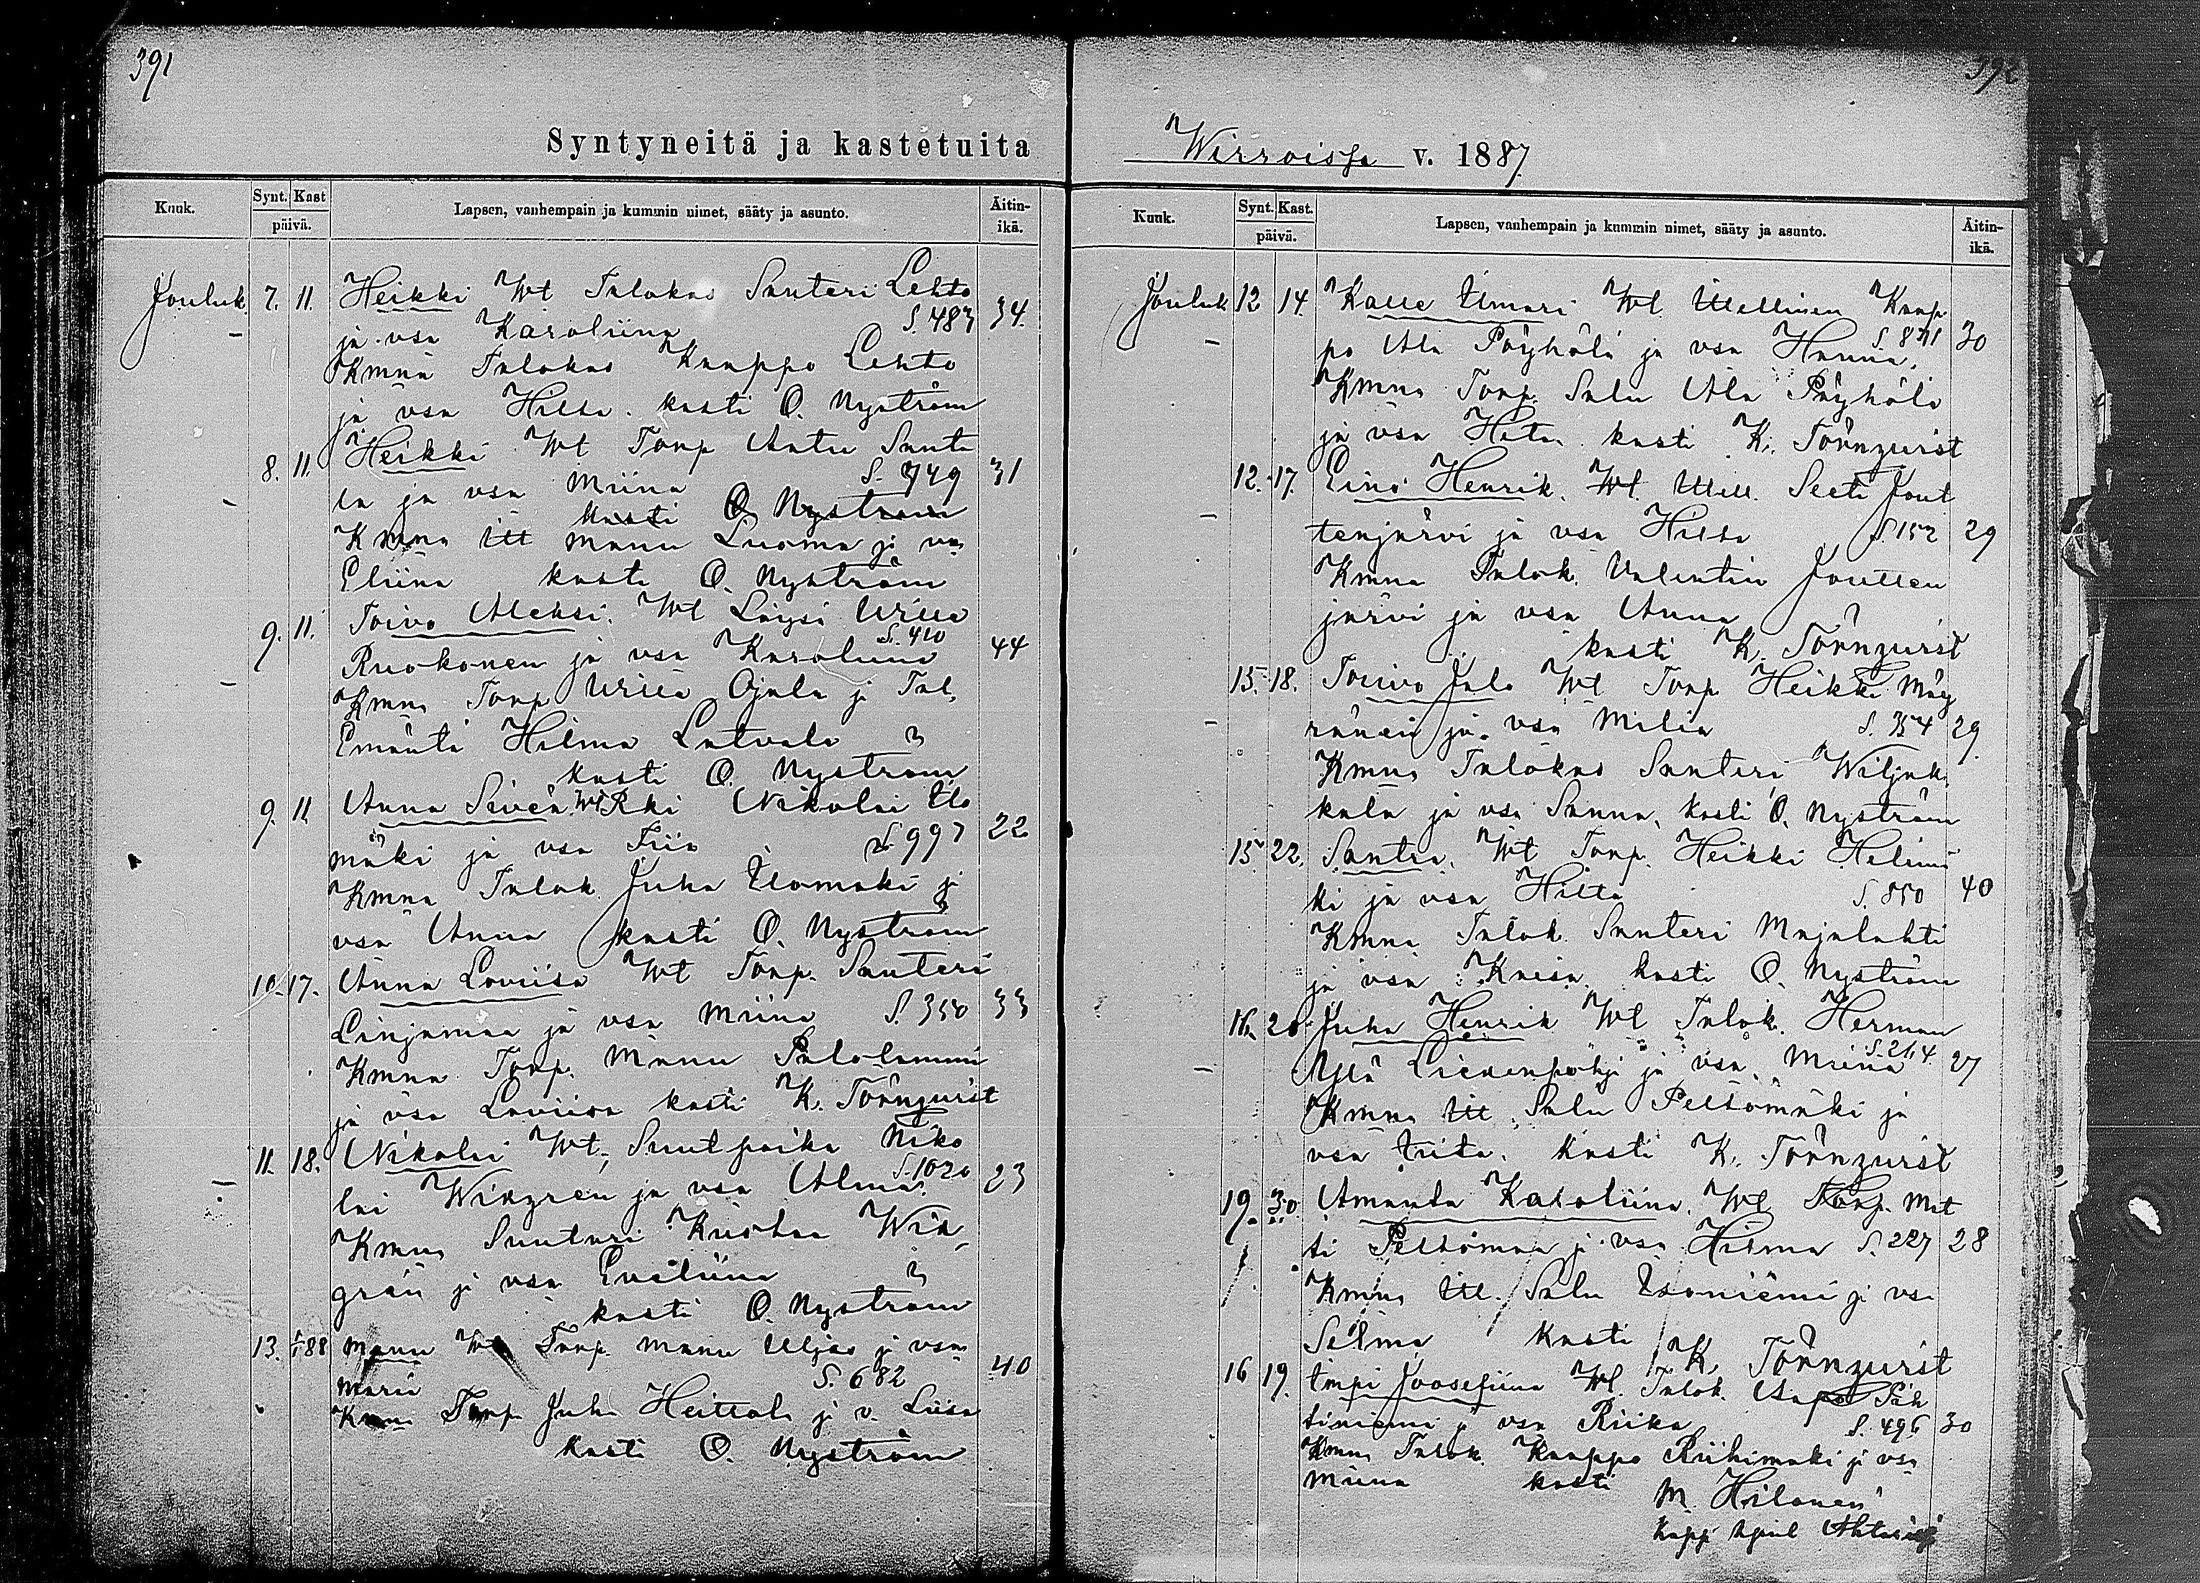 391
Syntyneitä ja kastetuita
Kuuk. Synt. Kast Lapsen, vanhempain ja kummin nimet, sääty ja asunto. Äitin-ikä.
päivä.
Jouluk. 7. 11. Heikki Wt Talokas Santeri Lehto
ja vsa Karoliina S. 483 34.
Kmna Talokas Kaappo Lehto
ja vsa Hilta. kasti O. Nyström
8. 11 Heikki Wt Torp Antu Santa
la ja vsa Miina S. 749 31
Kasti O Nyström
Kmna Itl Manu Luoma ja vsa
Eliina kasti O. Nyström
9. 11. Toivo Aleksi. Wt Läysi Willa
Ruokonen ja vsa Karoliina S. 410 44
Kmna Torp Willa Ojala ja Tal.
Emäntä Hilma Latvala
kasti O. Nyström
9. 11 Anna Sivén Wt Rki Nikolai Ulo
mäki ja vsa Fiia S. 997 22
Kmna Talok. Juha Ulomäki ja
vsa Anna kasti O. Nyström
10. 17. Anna Loviisa Wt Torp. Santeri
Linjamaa ja vsa Miina S. 350 33
Kmna Torp. Manu Salolammi
ja vsa Loviisa kasti K. Törnqvist
11. 18. Nikolai Wt. Suutpoika Niko
lai Wikgren ja vsa Alma S. 1020 23
Kmna Suutari Kustaa Wik
grän ja vsa Eveliina
kasti O. Nyström
13. 1/1 88 Manu Wt Torp. Manu Uljas ja vsa
Maria S. 682 40
Kmna Torp Juha Heittola ja v. Liisa
kasti O. Nyström
392
Wirroissa v. 1887
Kuuk. Synt. Kast. Lapsen, vanhempain ja kummin nimet, sääty ja asunto. Äitin-ikä.
päivä.
Jouluk 12 14. Kalle Ilmari Wt. Itsellinen Kaap
po Ala Pöyhölä ja vsa Hanna. S. 831 30
Kmna Torp. Salu Ala Pöyhölä
ja vsa Heta. kasti K. Törnqvist
12. 17. Eino Henrik. Wt. Itsll. Seeti Jout
tenjärvi ja vsa Hilta S. 152 29
Kmna Talok. Valentin Joutten
järvi ja vsa Anna
kasti K. Törnqvist
15. 18. Toivo Jalo Wt Torp Heikki Mäy
ränen ja vsa Milia S. 354 29.
Kmna Talokas Santeri Wiljak
kala ja vsa Sanna, kasti O. Nyström
15 22. Santra. Wt Torp. Heikki Helimi
ki ja vsa Hilta S. 850 40
Kmna Talok. Santeri Majalahti
ja vsa Kaisa kasti O. Nyström
16. 20. Juha Henrik Wt Talok. Herman
Yllä Liedenpohja ja vsa. Miina S. 214 27
Kmna Itl Salu Peltomäki ja
vsa Iita. kasti K. Törnqvist
19. 30. Amanda Karoliina. Wt Torp. Mat
ti Peltomaa ja vsa Hilma S. 227 28
Kmna Itl. Salu Isoniemi ja vsa
Selma kasti K. Törnqvist
16 19. Impi Joosefiina Wt. Talok.
ja vsa Riika S. 496 30
Kmna Talok. Kaappo Riihimäki ja vsa
Miina kasti M. Hilonen
kapp